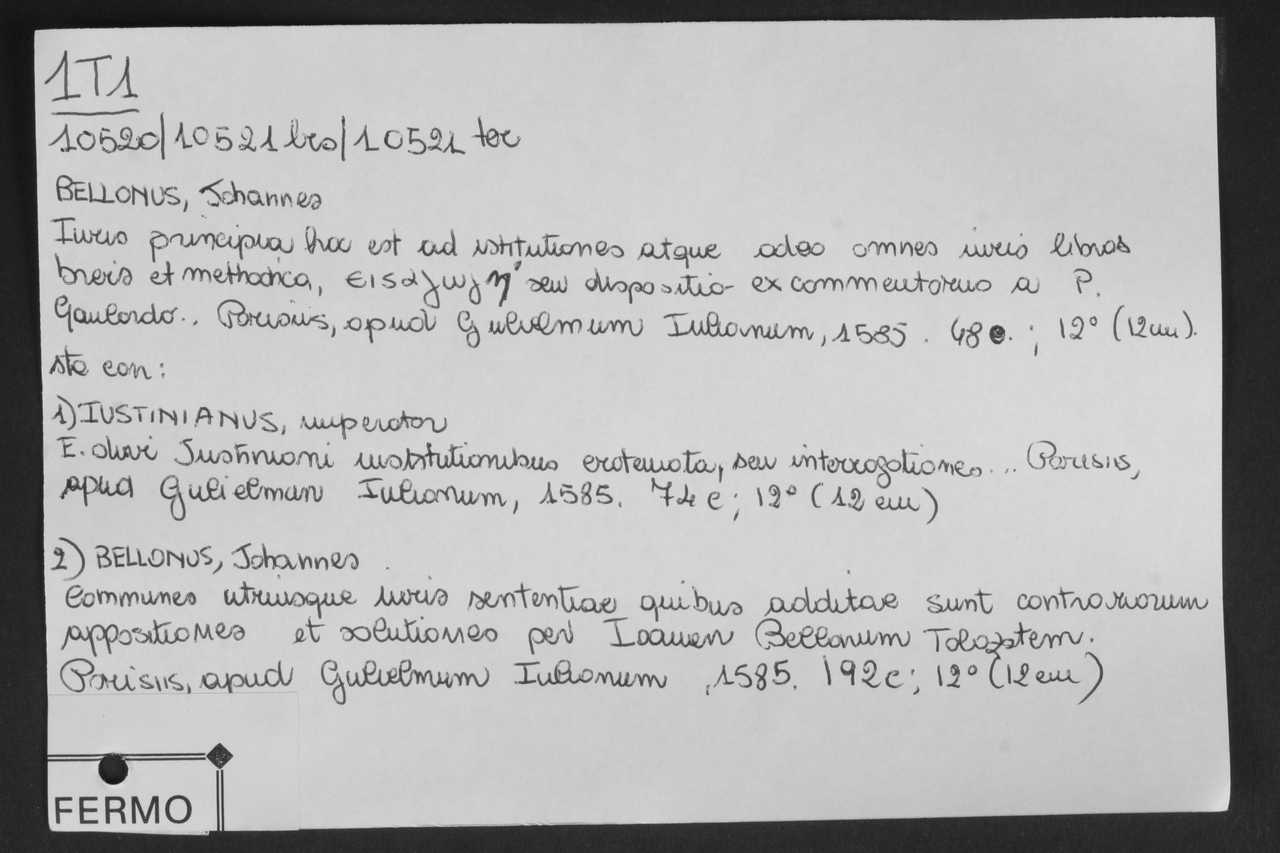 1T1
10520/10521 bis/10521 ter
BELLONUS, Johannes
Iuris principia hoc est ad istitutiones atque adeo omnes iuris libros
breis et methodica, εισαγωγη' seu dispositio ex commentariis a P.
Gaulardo.. Parisiis, apud Gulielmum Iulianum, 1585. 48 c. ; 12° (12 cm).
sta con:
1) IUSTINIANUS, imperator
E. divi Justiniani institutionibus erotemata, seu interrogationes... Parisiis,
apud Gulielmun Iulianum, 1585. 74 c; 12° (12 cm)
2) BELLONUS, Johannes.
Communes utriusque iuris sententiae quibus additae sunt contrariorum
appositiones et solutiones per Ioannen Bellonum Tolozatem.
Parisiis, apud Gulielmum Iulianum, 1585. 192 c; 12° (12 cm)
FERMO